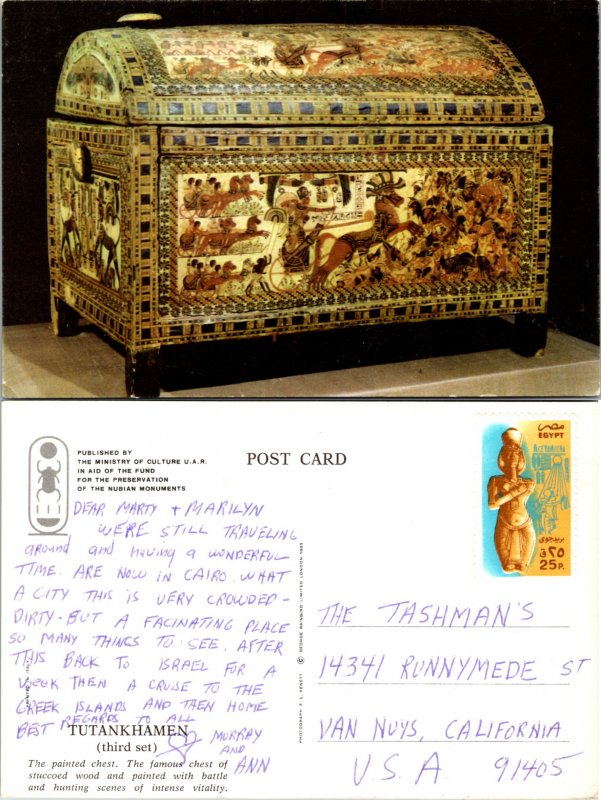 PUBLISHED BY
THE MINISTRY OF CULTURE U.A.R.
IN AID OF THE FUND
FOR THE PRESERVATION
OF THE NUBIAN MONUMENTS
POST CARD
مصر
EGYPT
بريد جوى
٢٥ ق
25 P.
DEAR MARTY + MARILYN
WE'RE STILL TRAVELING
around and having a WONDERFUL
TIME. ARE NOW IN CAIRO. WHAT
A CITY THIS IS VERY CROWDED -
DIRTY - BUT A FACINATING PLACE
SO MANY THINGS TO SEE. AFTER
THIS BACK TO ISRAEL FOR A
WEEK THEN A CRUISE TO THE
GREEK ISLANDS AND THEN HOME
BEST REGARDS TO ALL
MURRAY
AND
ANN
TUTANKHAMEN
(third set)
The painted chest. The famous chest of
stuccoed wood and painted with battle
and hunting scenes of intense vitality.
PHOTOGRAPH: F. L. KENETT © GEORGE RAINBIRD LIMITED LONDON 1963
THE TASHMAN'S
14341 RUNNYMEDE ST
VAN NUYS, CALIFORNIA
U.S.A 91405